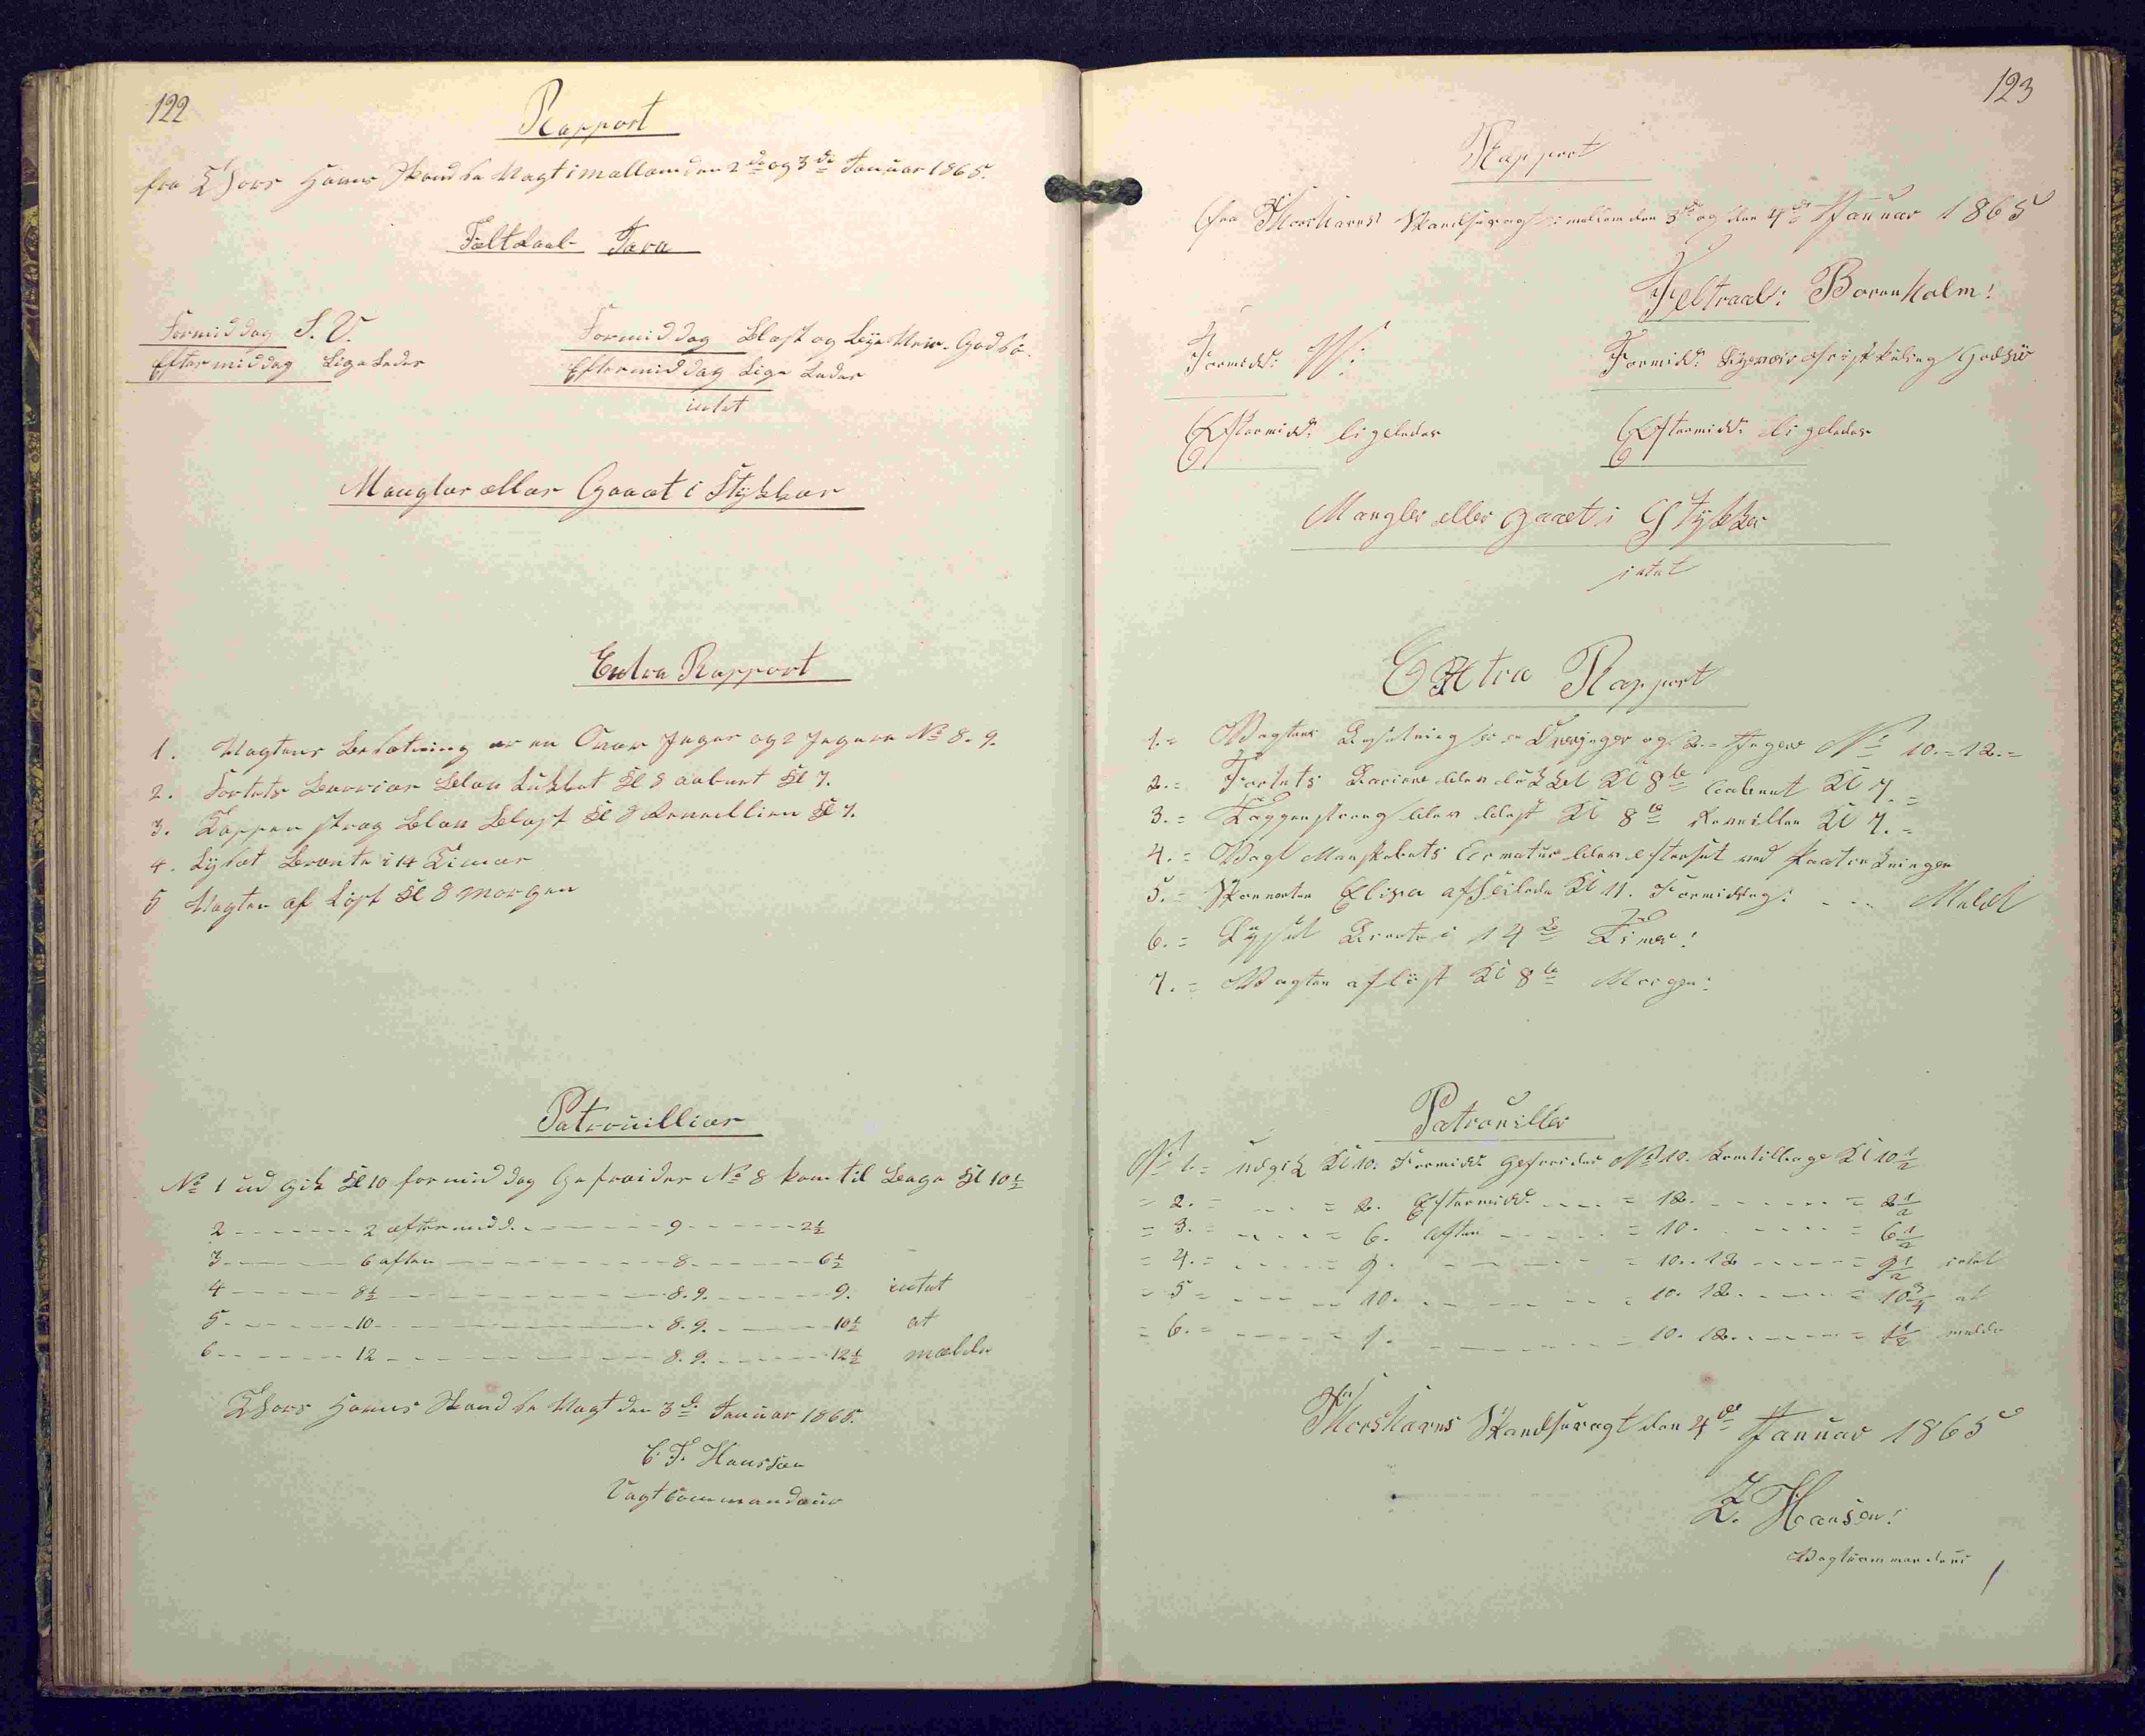 122
Rapport
fra Thors Havns Skandse Vagt imellem den 2de og 3de Januar 1865.
Feltraab Fara
Formiddag S. V. Formiddag Blæst og Regnveir. God Sø.
Eftermiddag Ligeledes Eftermiddag Ligeledes
intet
Mangler eller Gaaet i Stykker
Extra Rapport
1. Vagtens Besætning er en Over Jæger og 2 Jægere No 8. 9.
2. Fortets Barrier blev Lukket Kl 8 aabnet Kl 7.
3. Tappenstreg blev blæst Kl 8 Reveillien Kl 7.
4. Lyset brænte i 14 Timer
5 Vagten afløst Kl 8 Morgen
Patrouillier
No 1 udgik Kl 10 formiddag Gefreider No 8 kom tilbage Kl 10½
2 - - - 2 eftermidd. - - - 9 - - - 2½
3 - - - 6 aften - - - 8 - - - 6½
4 - - - 8½ - - - 8. 9. - - - 9. intet
5 - - - 10 - - - 8. 9. - - - 10½ at
6 - - - 12 - - - 8. 9. - - - 12½ melde
Thors Havns Skandse Vagt den 3de Januar 1865.
C. F. Hanssen
Vagtcommandeur
123
Rapport
fra Thorshavns Skandsevagt imellem den 3de og den 4de Januar 1865
Feltraab: Bornholm!
Formidd: V: Formidd: Regnveir frisk Kuling God Sø
Eftermidd: ligeledes Eftermidd: ligeledes
Mangler eller gaaet i Stykker
intet
Extra Rapport
1.= Vagtens Besætning er en Overjæger og 2.= Jægere No 10.=12.=
2.= Fortets Bariere blev lukket Kl 8te aabnet Kl 7.=
3.= Tappenstreng blev blæst Kl 8te Reveillen Kl 7.=
4.= Vagt Manskabets Armatur blev efterset ved Paatrækningen
5.= Skonnerten Elisa afseilede Kl 11. Formiddag: - - -
6.= Lyset brænte i 14de Timer!
7.= Vagten afløst Kl 8te Morgen:
Patrouiller
No 1.= udgik Kl 10. Formidd: Gefreider No 10. kom tilbage Kl 10½
= 2.= - - - = 2. Eftermidd. - - - = 12. - - - = 2½
= 3.= - - - = 6. Aften - - - = 10. - - - = 6½
= 4.= - - - 9. - - - = 10. 12 - - - = 9½ intet
= 5= - - - 10. - - - = 10. 12. - - - = 10¾ at
= 6.= - - - = 1. - - - 10. 12. - - - = 1½ melde
Thorshavns Skandsevagt den 4de Januar 1865
Z. Hansen!
Vagtcommandeur